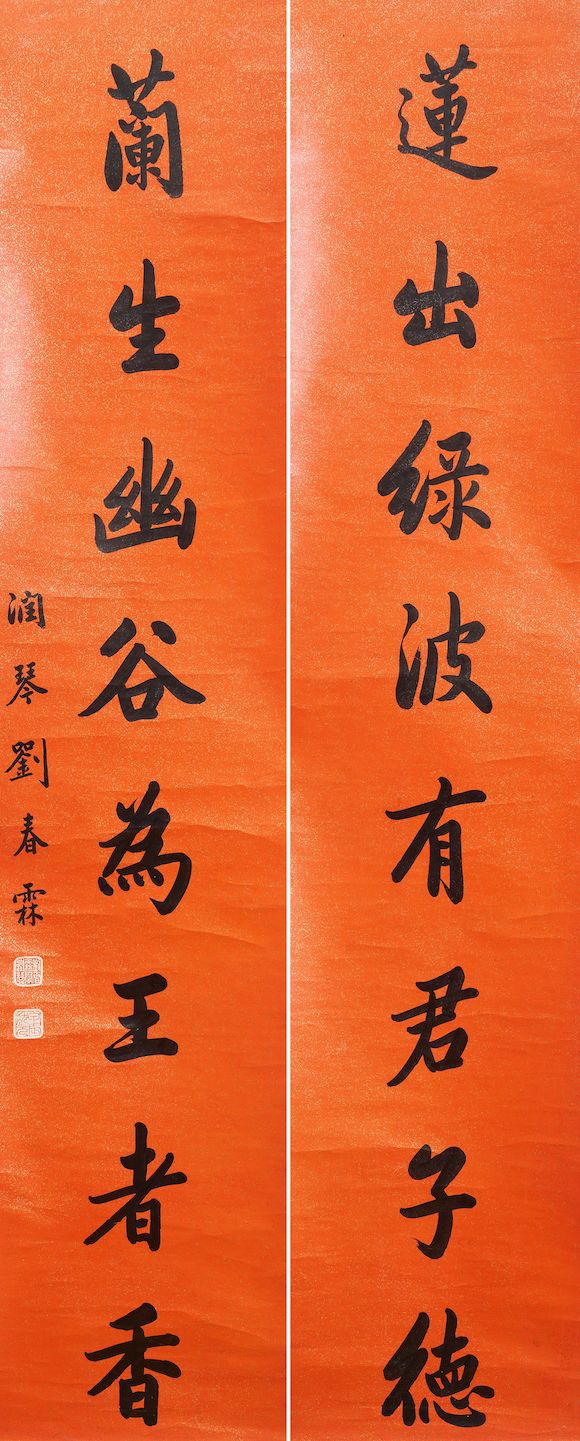 蓮出綠波有君子德
蘭生幽谷為王者香
潤琴劉春霖